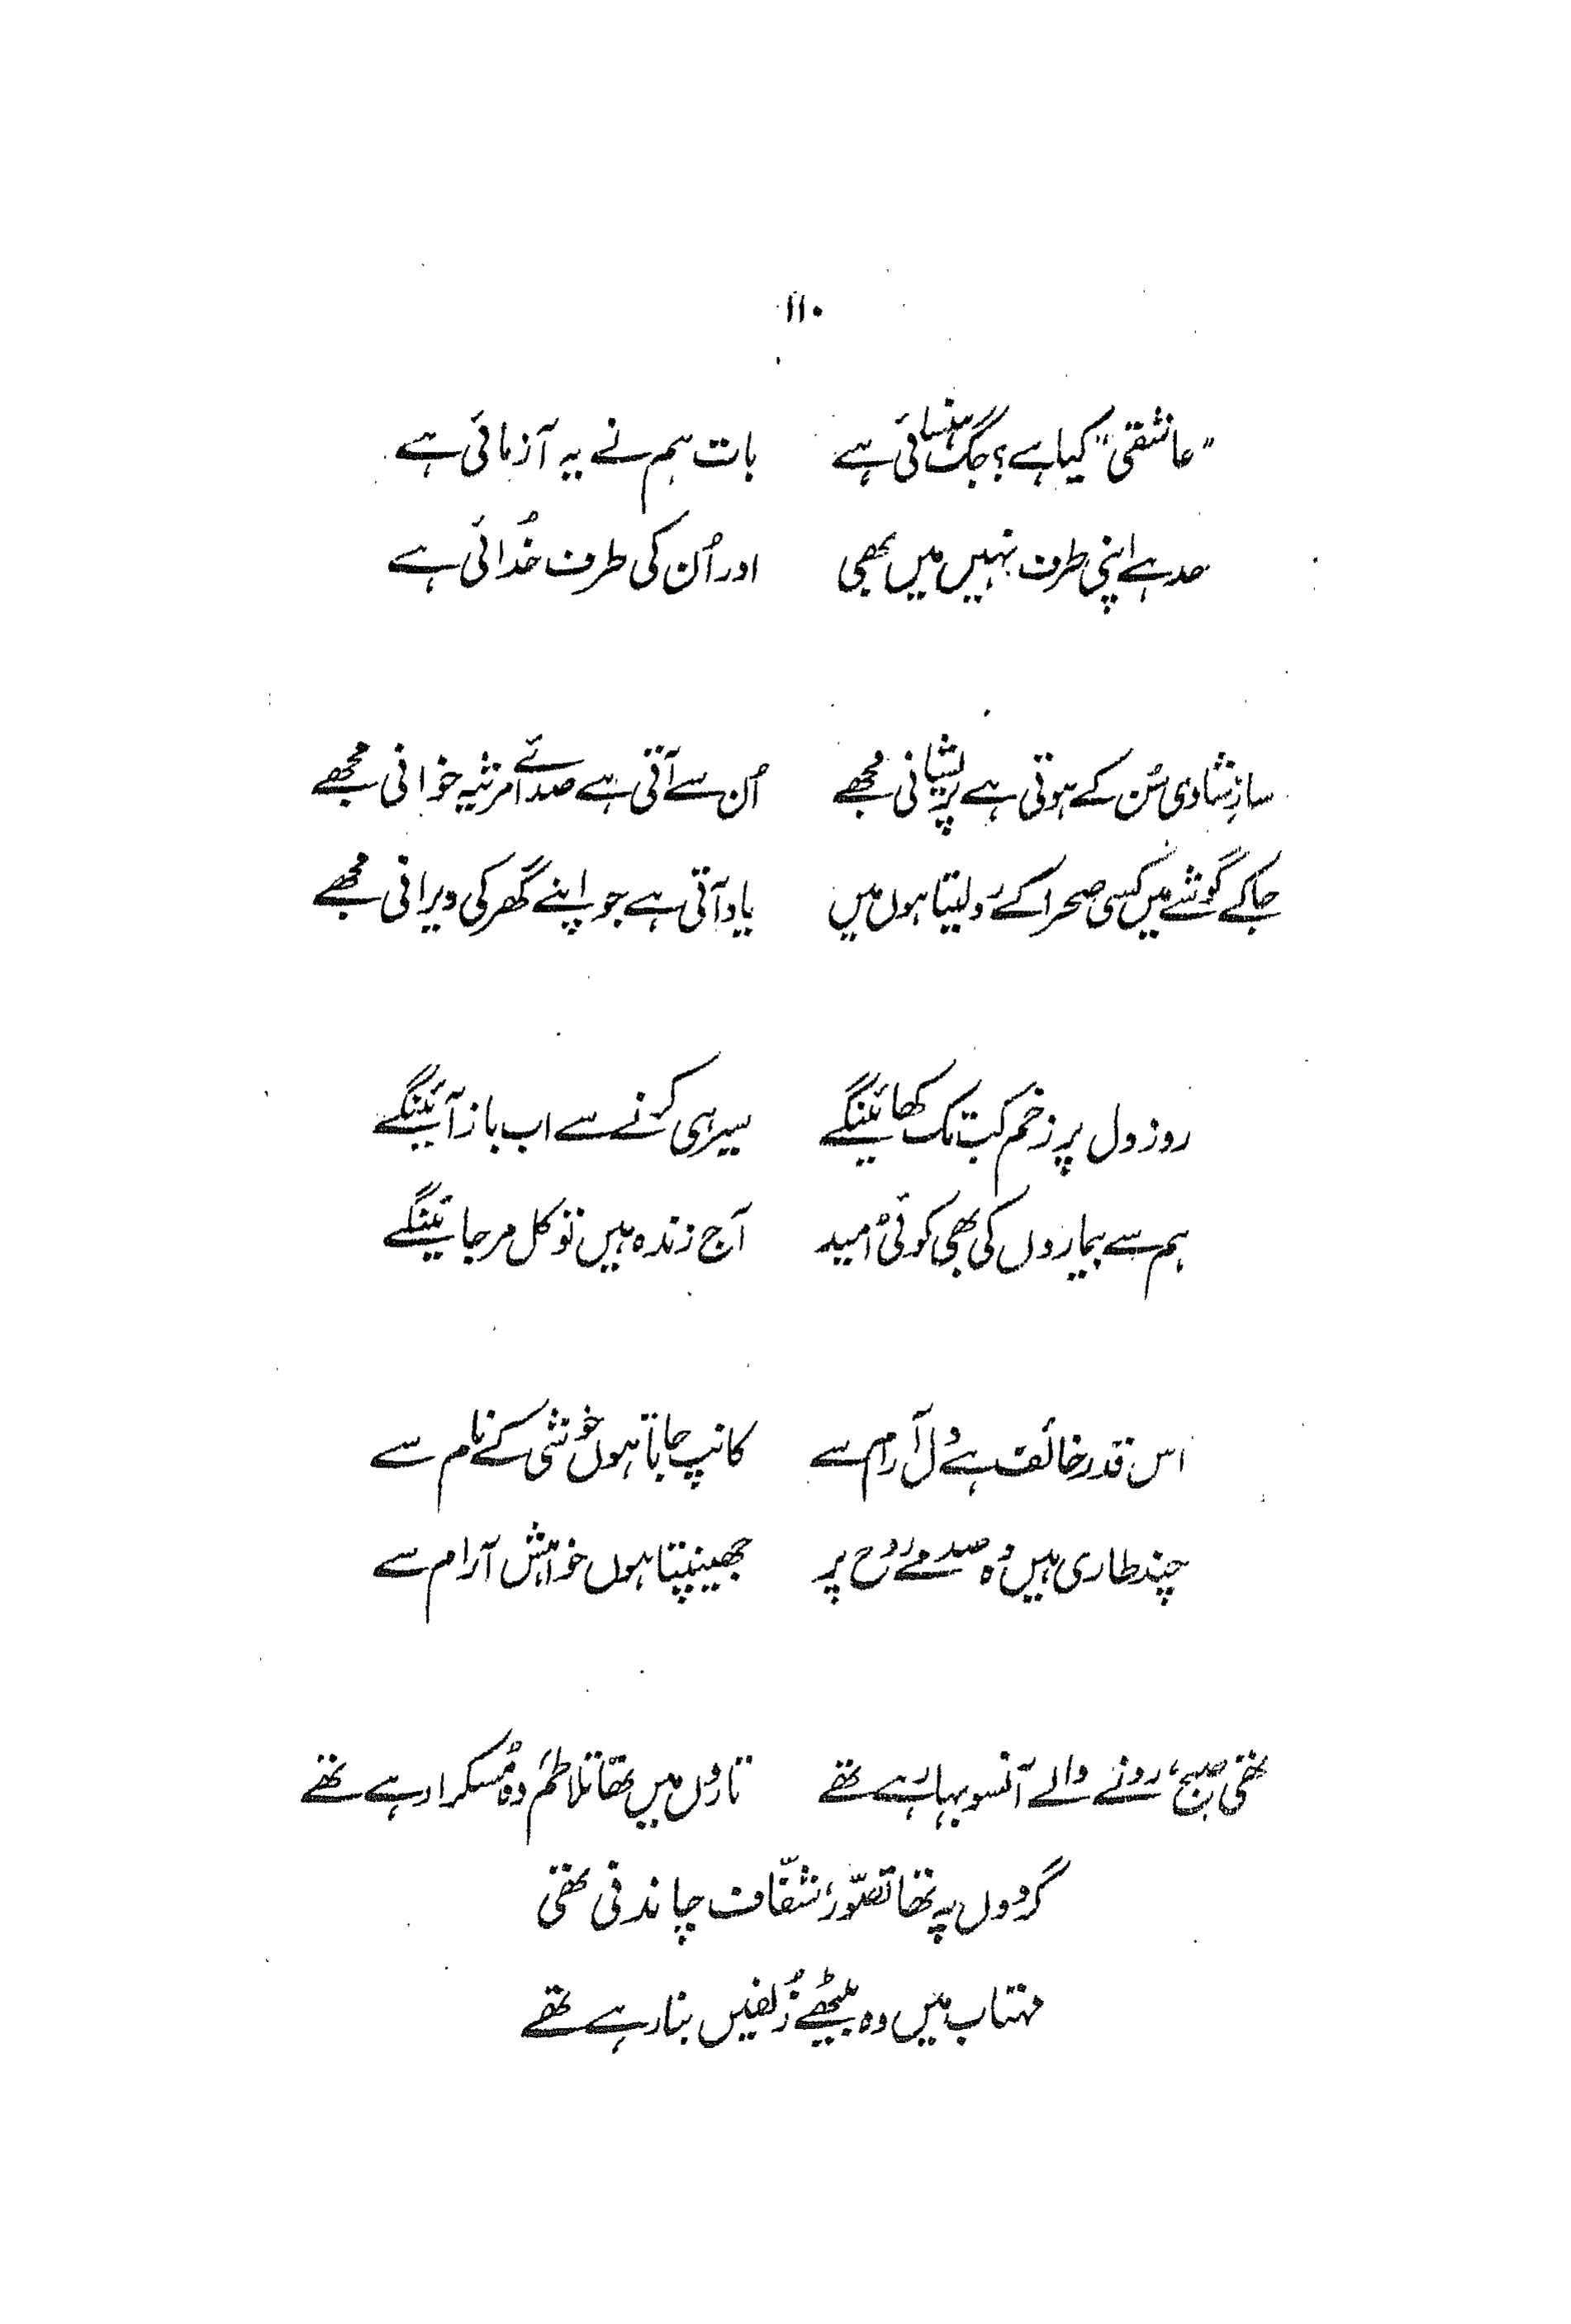 ۱۱۰
"عاشقی" کیا ہے؟ جگ ہنسائی ہے بات ہم نے یہ آزمائی ہے
حد ہے اپنی طرف نہیں میں بھی اور اُن کی طرف خُدائی ہے
سازِ شادی سُن کے ہوتی ہے پریشانی مجھے اُن سے آتی ہے صدائے مرثیہ خوانی مجھے
جا کے گوشے میں کسی صحرا کے رو لیتا ہوں میں یاد آتی ہے جو اپنے گھر کی ویرانی مجھے
روز دل پر زخم کب تک کھائینگے سیر ہی کرنے سے اب باز آئینگے
ہم سے بیماروں کی بھی کوئی اُمید آج زندہ ہیں تو کل مر جائینگے
اس قدر خائف ہے دل آرام سے کانپ جاتا ہوں خوشی کے نام سے
چند طاری ہیں وہ صدمے روح پر جھینپتا ہوں خواہش آرام سے
تھی صبح، رونے والے آنسو بہا رہے تھے تاروں میں تھا تلاطم وہ مُسکرا رہے تھے
گردوں پہ تھا تصوّر، شفّاف چاندنی تھی
مہتاب میں وہ بیٹھے زُلفیں بنا رہے تھے